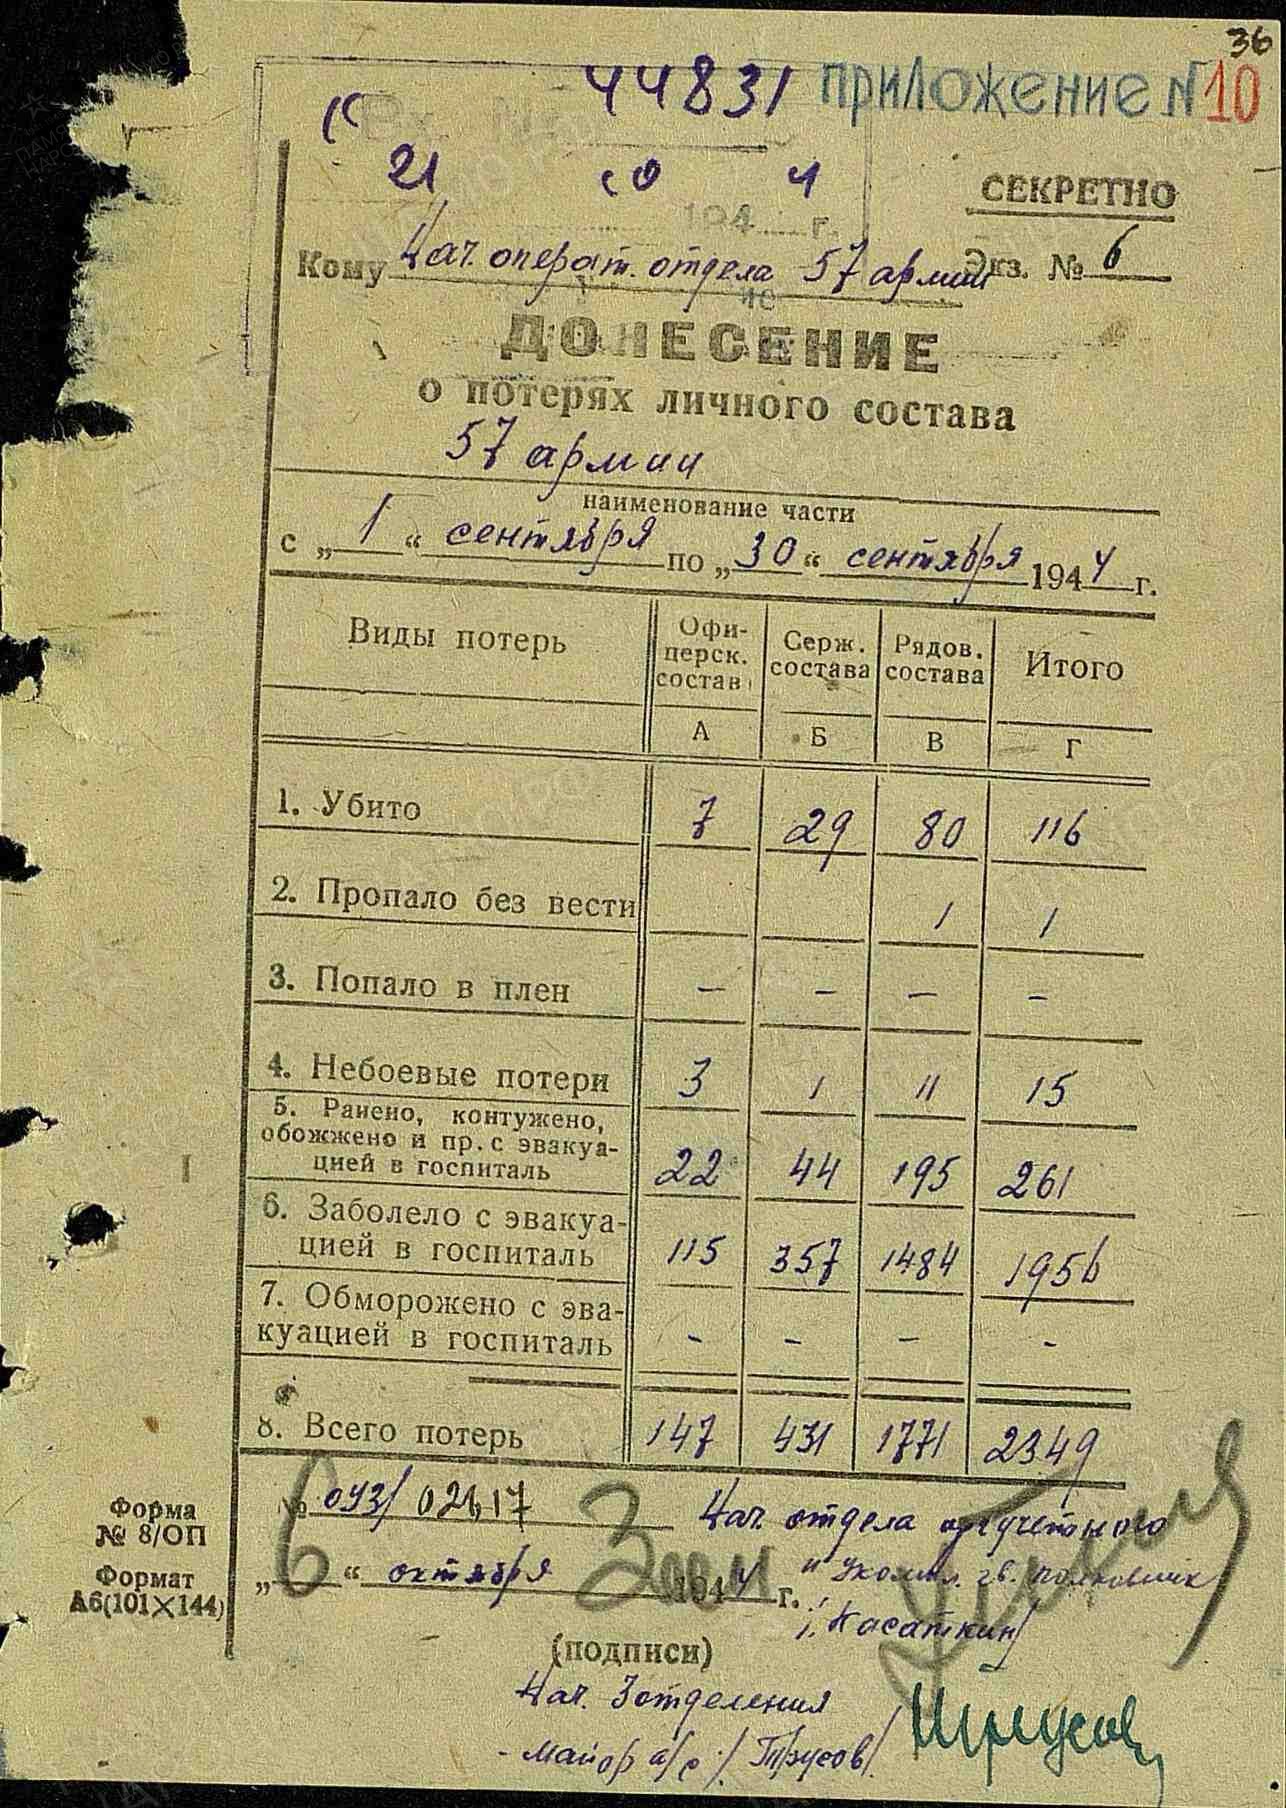 36
44831 приложение N 10
Вх. №
21 10 4
194 г.
СЕКРЕТНО
Кому Нач. операт. отдела 57 армии Экз. № 6
ДОНЕСЕНИЕ
о потерях личного состава
57 армии
наименование части
с „ 1 “ сентября по „ 30 “ сентября 1944 г.
Виды потерь Офи- Серж. Рядов. Итого
церск. состава состава
состав
А Б В Г
1. Убито 7 29 80 116
2. Пропало без вести 1 1
3. Попало в плен – – – –
4. Небоевые потери 3 1 11 15
5. Ранено, контужено,
обожжено и пр. с эвакуа-
цией в госпиталь 22 44 195 261
6. Заболело с эвакуа-
цией в госпиталь 115 357 1484 1956
7. Обморожено с эва-
куацией в госпиталь - - - -
8. Всего потерь 147 431 1771 2349
№ 043/02417 Нач. отдела
„ 6 “ октября 1944 г. и укомпл. гв. полковник
/Касаткин/
(подписи)
Нач. 3 отделения
- майор а/с /Трусов/
Форма
№ 8/ОП
Формат
А6(101×144)